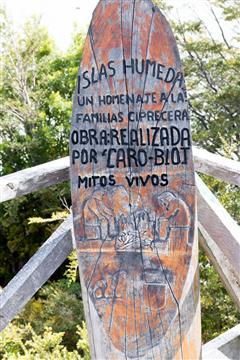 ISLAS HUMEDA
UN HOMENAJE A LA
FAMILIAS CIPRECERA
OBRA:REALIZADA
POR "CARO-BLOT
MITOS VIVOS